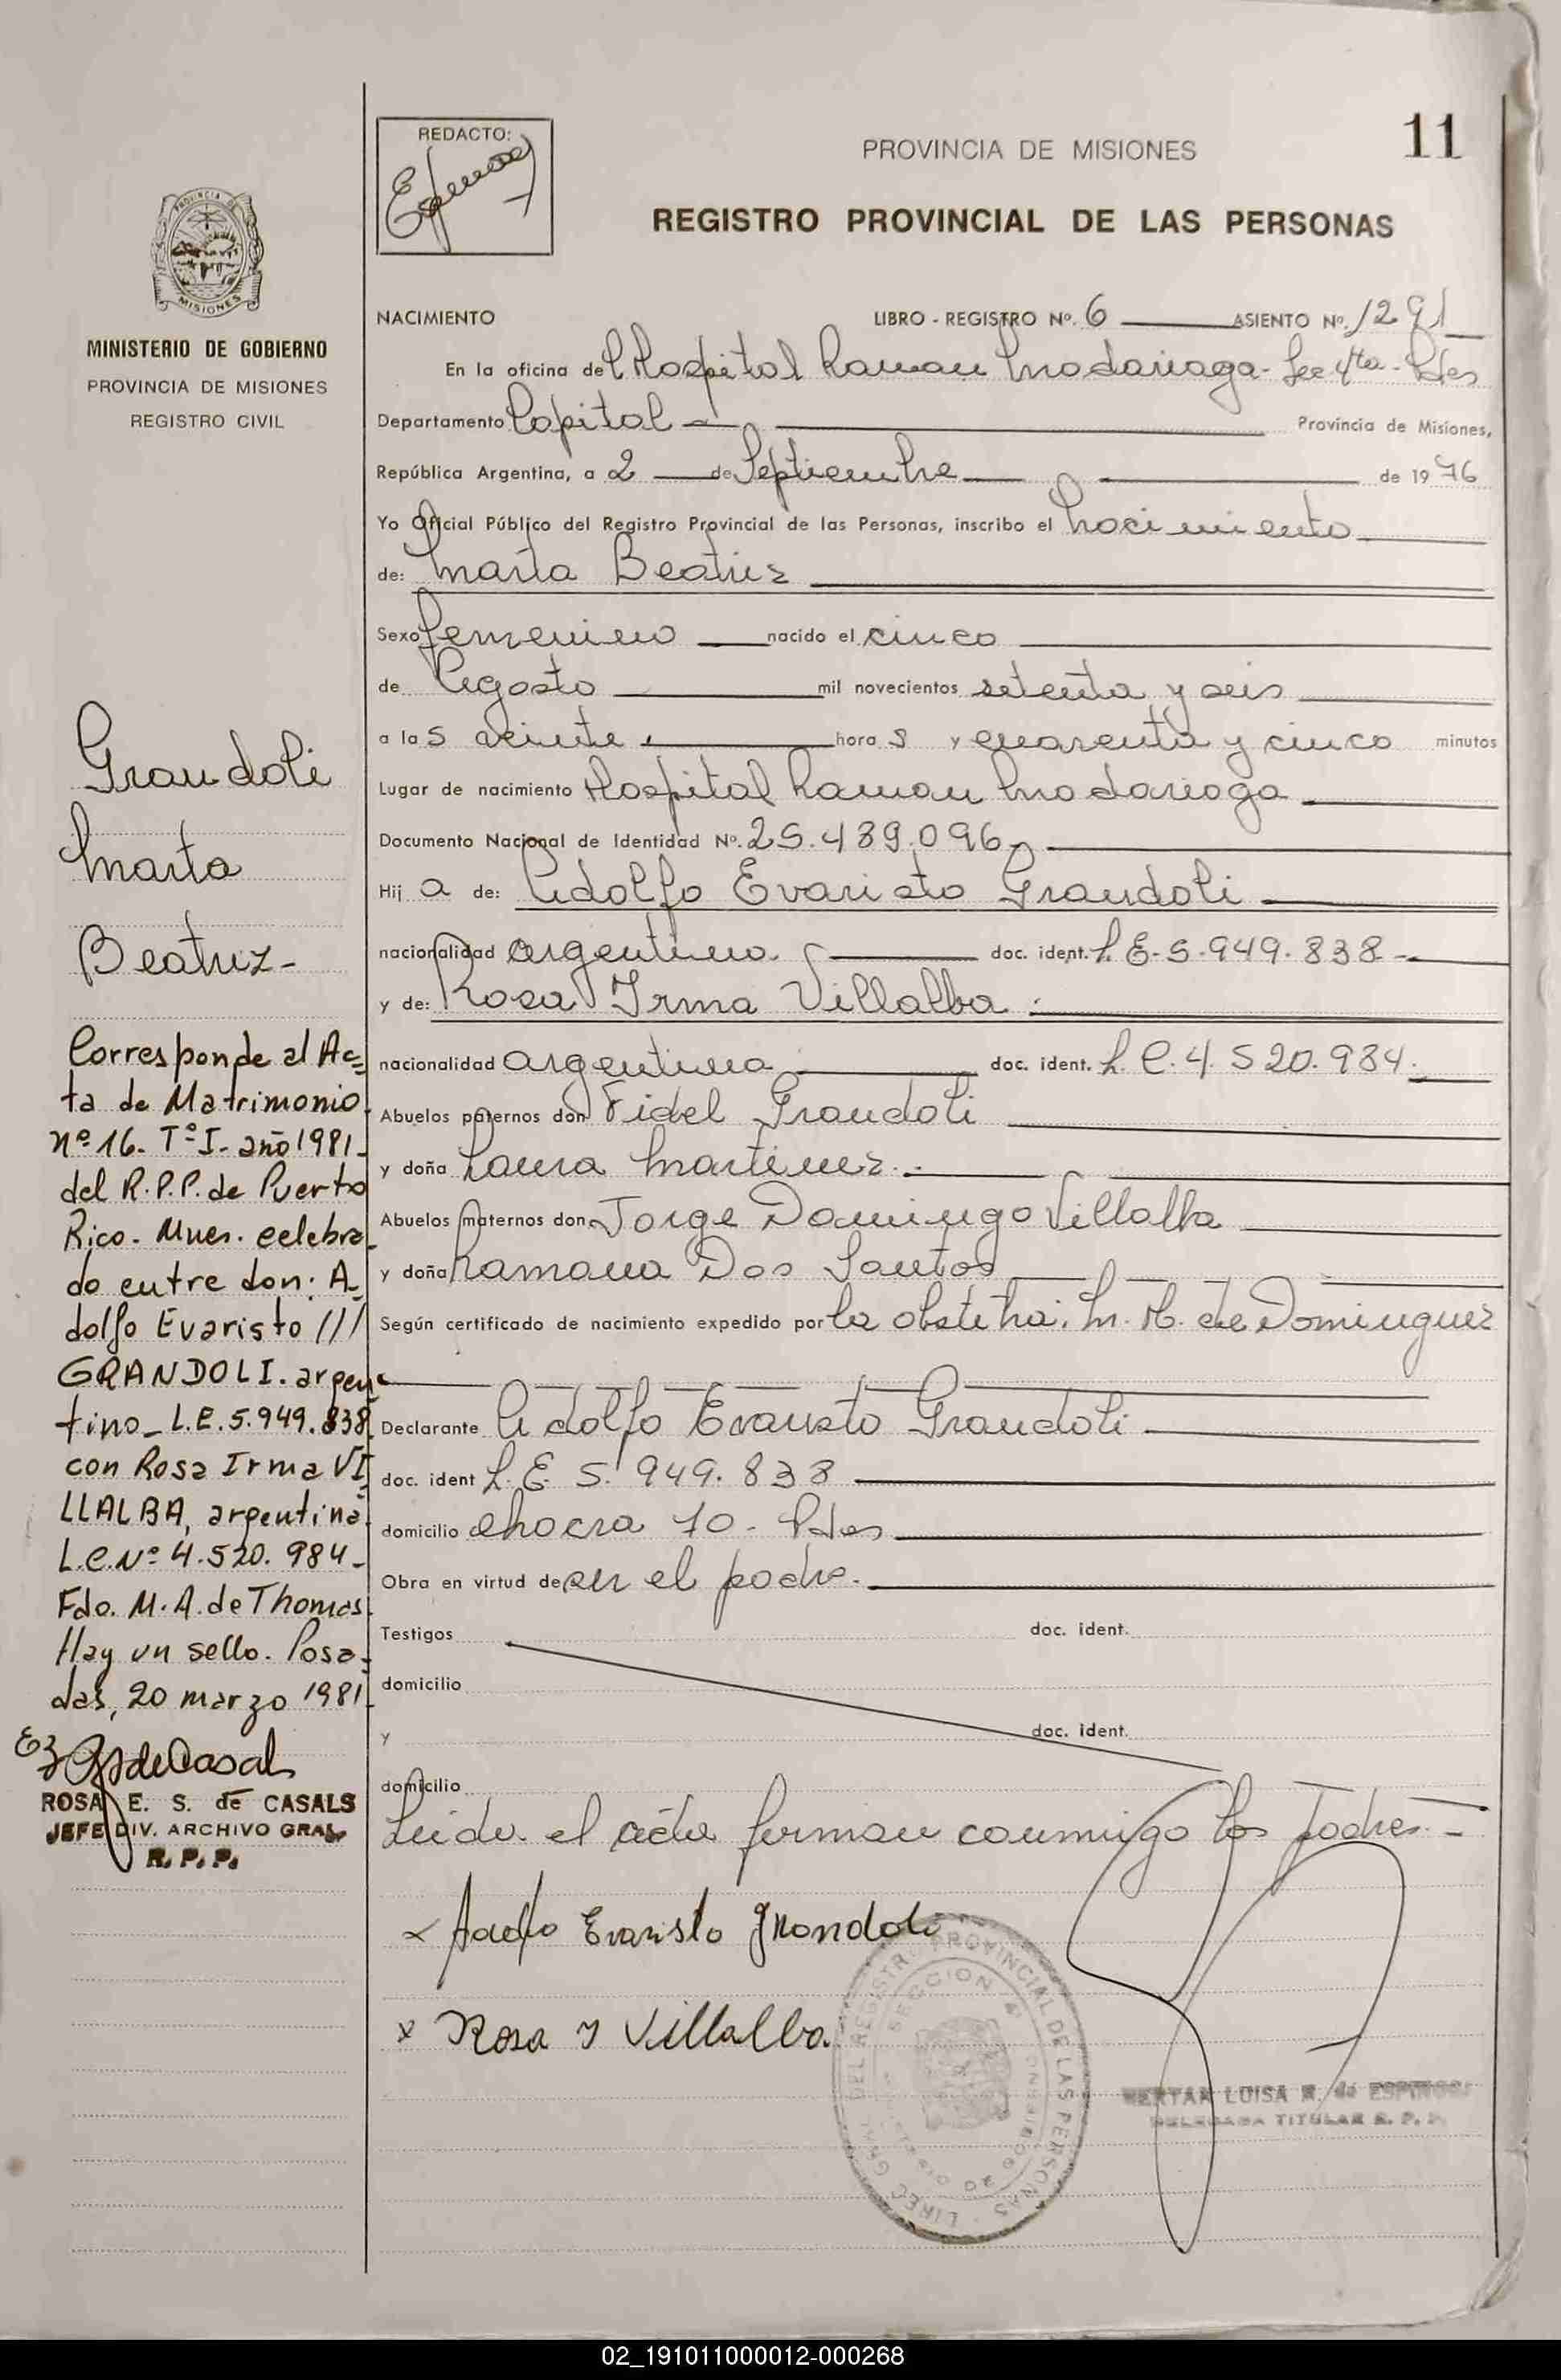 11
REDACTO:
PROVINCIA DE MISIONES
REGISTRO PROVINCIAL DE LAS PERSONAS
PROVINCIA DE
MISIONES
MINISTERIO DE GOBIERNO
PROVINCIA DE MISIONES
REGISTRO CIVIL
Grandoli
Marta
Beatriz-
Corresponde al Ac=
ta de Matrimonio
nº 16- Tº I- año 1981-
del R.P.P. de Puerto
Rico- Mnes. celebra
do entre don: A
dolfo Evaristo ///
GRANDOLI. argen
tino- L.E. 5.949.838
con Rosa Irma VI
LLALBA, argentina
L.C. Nº 4.520.984-
Fdo. M.A. de Thomas
Hay un sello. Posa=
das, 20 marzo 1981
ROSA E. S. de CASALS
JEFE DIV. ARCHIVO GRAL
R. P. P.
NACIMIENTO LIBRO - REGISTRO Nº. 6 ASIENTO Nº. 1291
En la oficina del Hospital Ramon Madariaga- Sec 4ta- Pdas
Departamento Capital - Provincia de Misiones,
República Argentina, a 2 de Septiembre de 1976
Yo Oficial Público del Registro Provincial de las Personas, inscribo el Nacimiento
de: Marta Beatriz
Sexo femenino nacido el cinco
de Agosto mil novecientos setenta y seis
a las veinte hora s y cuarenta y cinco minutos
Lugar de nacimiento Hospital Ramon Madariaga
Documento Nacional de Identidad Nº. 25.489.096-
Hij a de: Adolfo Evaristo Grandoli
nacionalidad argentino doc. ident. L.E- 5.949.838-
y de: Rosa Irma Villalba
nacionalidad argentina doc. ident. L.C. 4.520.984.
Abuelos paternos don Fidel Grandoli
y doña Laura Martinez.
Abuelos maternos don Jorge Domingo Villalba
y doña Ramona Dos Santos
Según certificado de nacimiento expedido por la obstetra: M. H. de Dominguez
Declarante Adolfo Evaristo Grandoli
doc. ident L.E. 5.949.838
domicilio chacra 10- Pdas
Obra en virtud de ser el padre.
Testigos doc. ident.
domicilio
y doc. ident.
domicilio
Leida el acta firman conmigo los padres.-
x Adolfo Evaristo Grandoli
x Rosa I Villalba
DIREC. GRAL. DEL REGISTRO PROVINCIAL DE LAS PERSONAS
SECCION 4
LUISA N. de ESPINOSA
DELEGADA TITULAR R. P. P.
02_191011000012-000268